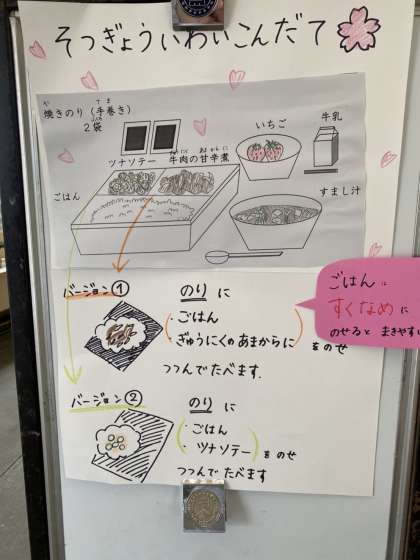 そつぎょういわいこんだて
焼きのり(手巻き)
2袋
ツナソテー
牛肉の甘辛煮
いちご
牛乳
ごはん
すまし汁
バージョン①
のりに
・ごはん
・ぎゅうにくのあまからに
をのせ
つつんでたべます.
ごはんに
すくなめに
のせると まきやすい
バージョン②
のりに
・ごはん
・ツナソテー
をのせ
つつんでたべます